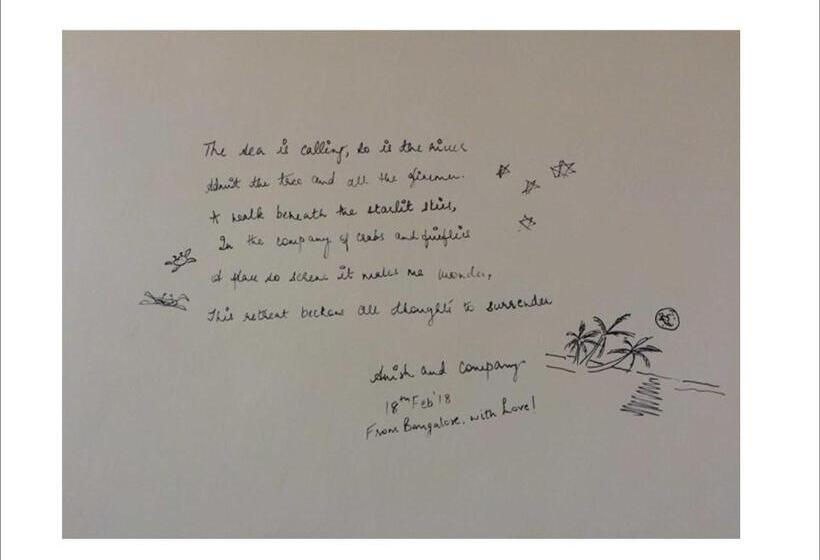 The sea is calling, so is the river
Admit the tree and all the
A walk beneath the starlit skies,
In the company of crabs and fireflies
A place so serene it makes me wonder,
This retreat beckons all thoughts to surrender
Anish and company
18th Feb'18
From Bangalore, with Love!